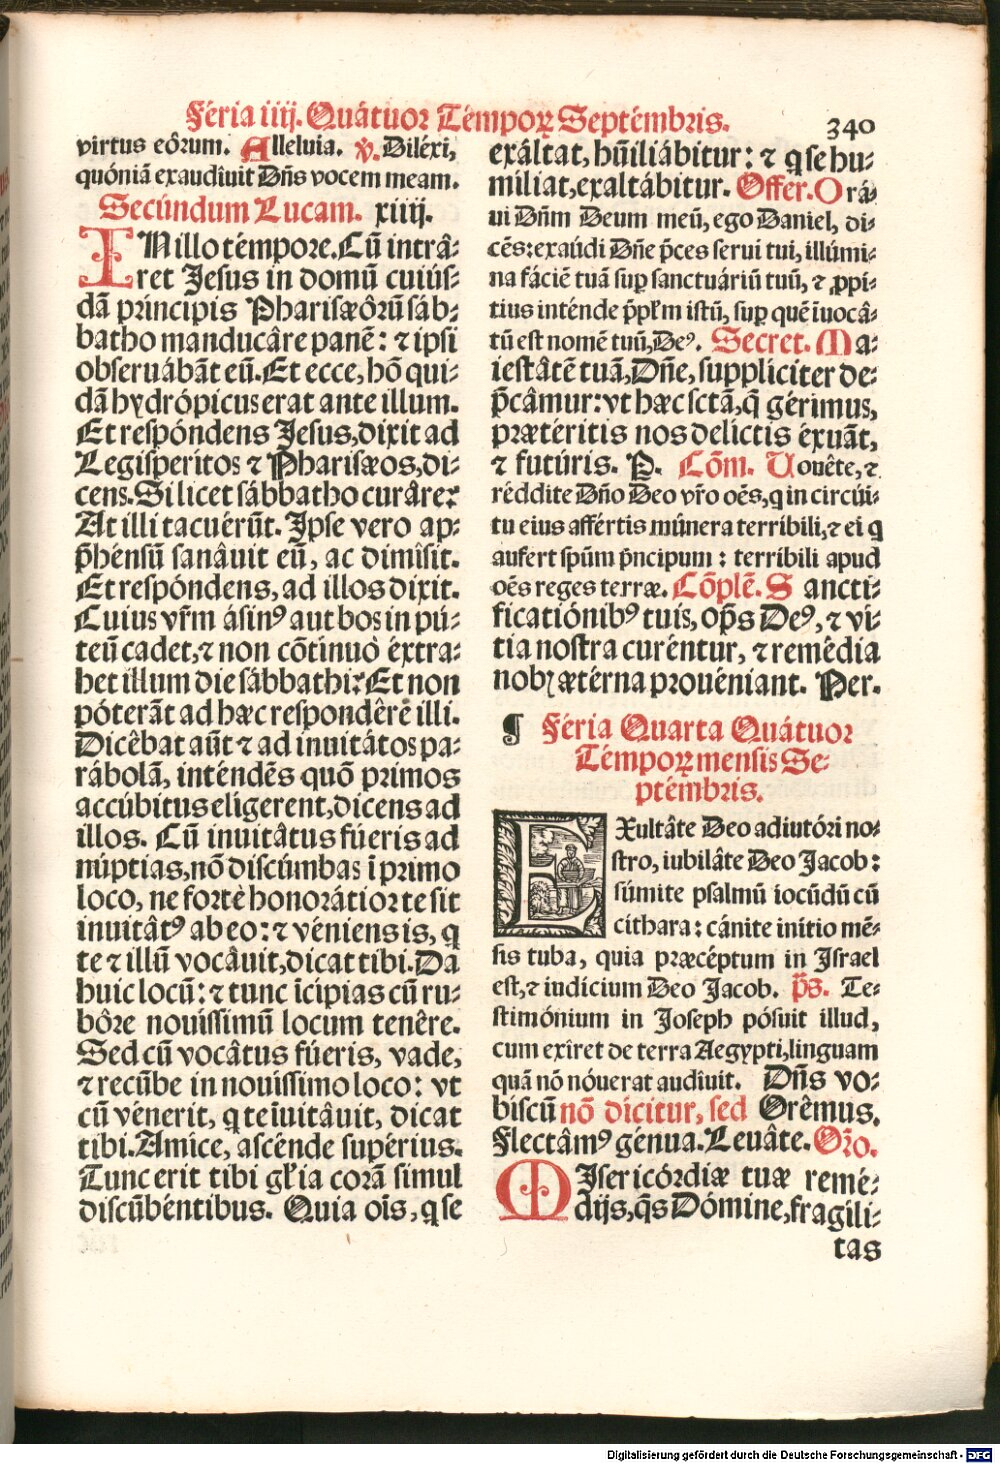 Féria iiij. Quátuor Témpoꝝ Septémbris.
340
virtus eôrum. Alleluia. ℣. Diléxi,
quóniã exaudîuit Dñs vocem meam.
Secúndum Lucam. xiiij.
IN illo témpore. Cũ intrâ-
ret Jesus in domũ cuiús-
dã príncipis Pharisæôrũ sáb-
batho manducâre panẽ: ⁊ ipsi
obseruâbãt eũ. Et ecce, hõ qui-
dã hydrópicus erat ante illum.
Et respóndens Jesus, dixit ad
Legisperitos ⁊ Pharisæos, di-
cens. Si licet sábbatho curâre?
At illi tacuérũt. Ipse vero ap-
p̃hénsũ sanâuit eũ, ac dimîsit.
Et respóndens, ad illos dixit.
Cuius vr̃m ásinꝰ aut bos in pú-
teũ cadet, ⁊ non cõtinuò éxtra-
het illum die sábbathi? Et non
póterãt ad hæc respondêrẽ illi.
Dicêbat aũt ⁊ ad inuitátos pa-
rábolã, inténdẽs quõ primos
accúbitus eligerent, dicens ad
illos. Cũ inuitâtus fúeris ad
núptias, nõ discúmbas ĩ primo
loco, ne fortè honorátior te sit
inuitâtꝰ ab eo: ⁊ véniens is, q
te ⁊ illũ vocâuit, dicat tibi. Dã
huic locũ: ⁊ tunc ĩcipias cũ ru-
bôre nouíssimũ locum tenêre.
Sed cũ vocâtus fúeris, vade,
⁊ recũbe in nouíssimo loco: vt
cũ vénerit, q te ĩuitâuit, dicat
tibi. Amice, ascénde supérius.
Tunc erit tibi gl̃ia corã simul
discũbéntibus. Quia oĩs, q se
exáltat, hũiliábitur: ⁊ q se hu-
míliat, exaltábitur. Offer. Orá-
ui Dñm Deum meũ, ego Daniel, di-
cẽs: exaúdi Dñe p̃ces serui tui, illúmi-
na fáciẽ tuã suꝑ sanctuáriũ tuũ, ⁊ ꝓpi-
tius inténde p̃pl̃m istũ, suꝑ quẽ ĩuocâ-
tũ est nomẽ tuũ, Deꝰ. Secret. Ma-
iestâtẽ tuã, Dñe, supplíciter de-
p̃câmur: vt hæc sctã, q̃ gérimus,
prætéritis nos delíctis éxuãt,
⁊ futúris. P. Cõm. Uouête, ⁊
réddite Dño Deo vr̃o oẽs, q in circúi-
tu eius affértis múnera terribili, ⁊ ei q
aufert sp̃um p̃ncipum: terríbili apud
oẽs reges terræ. Cõplẽ. Sancti-
ficatiónibꝰ tuis, op̃s Deꝰ, ⁊ vi-
tia nostra curéntur, ⁊ remédia
nobꝫ ætérna prouéniant. Per.
¶ Féria Quarta Quátuor
Témpoꝝ mensis Se-
ptémbris.
EXultâte Deo adiutóri no-
stro, iubilâte Deo Jacob:
súmite psalmũ iocũdũ cũ
cithara: cánite initio mẽ-
sis tuba, quia præcéptum in Israel
est, ⁊ iudícium Deo Jacob. p̃s. Te-
stimónium in Joseph pósuit illud,
cum exîret de terra Aegypti, linguam
quã nõ nóuerat audîuit. Dñs vo-
biscũ nõ dícitur, sed Orêmus.
Flectâmꝰ génua. Leuâte. Oŕo.
MIsericórdiæ tuæ remé-
dijs, q̃s Dómine, fragíli-
tas
Digitalisierung gefördert durch die Deutsche Forschungsgemeinschaft - DFG